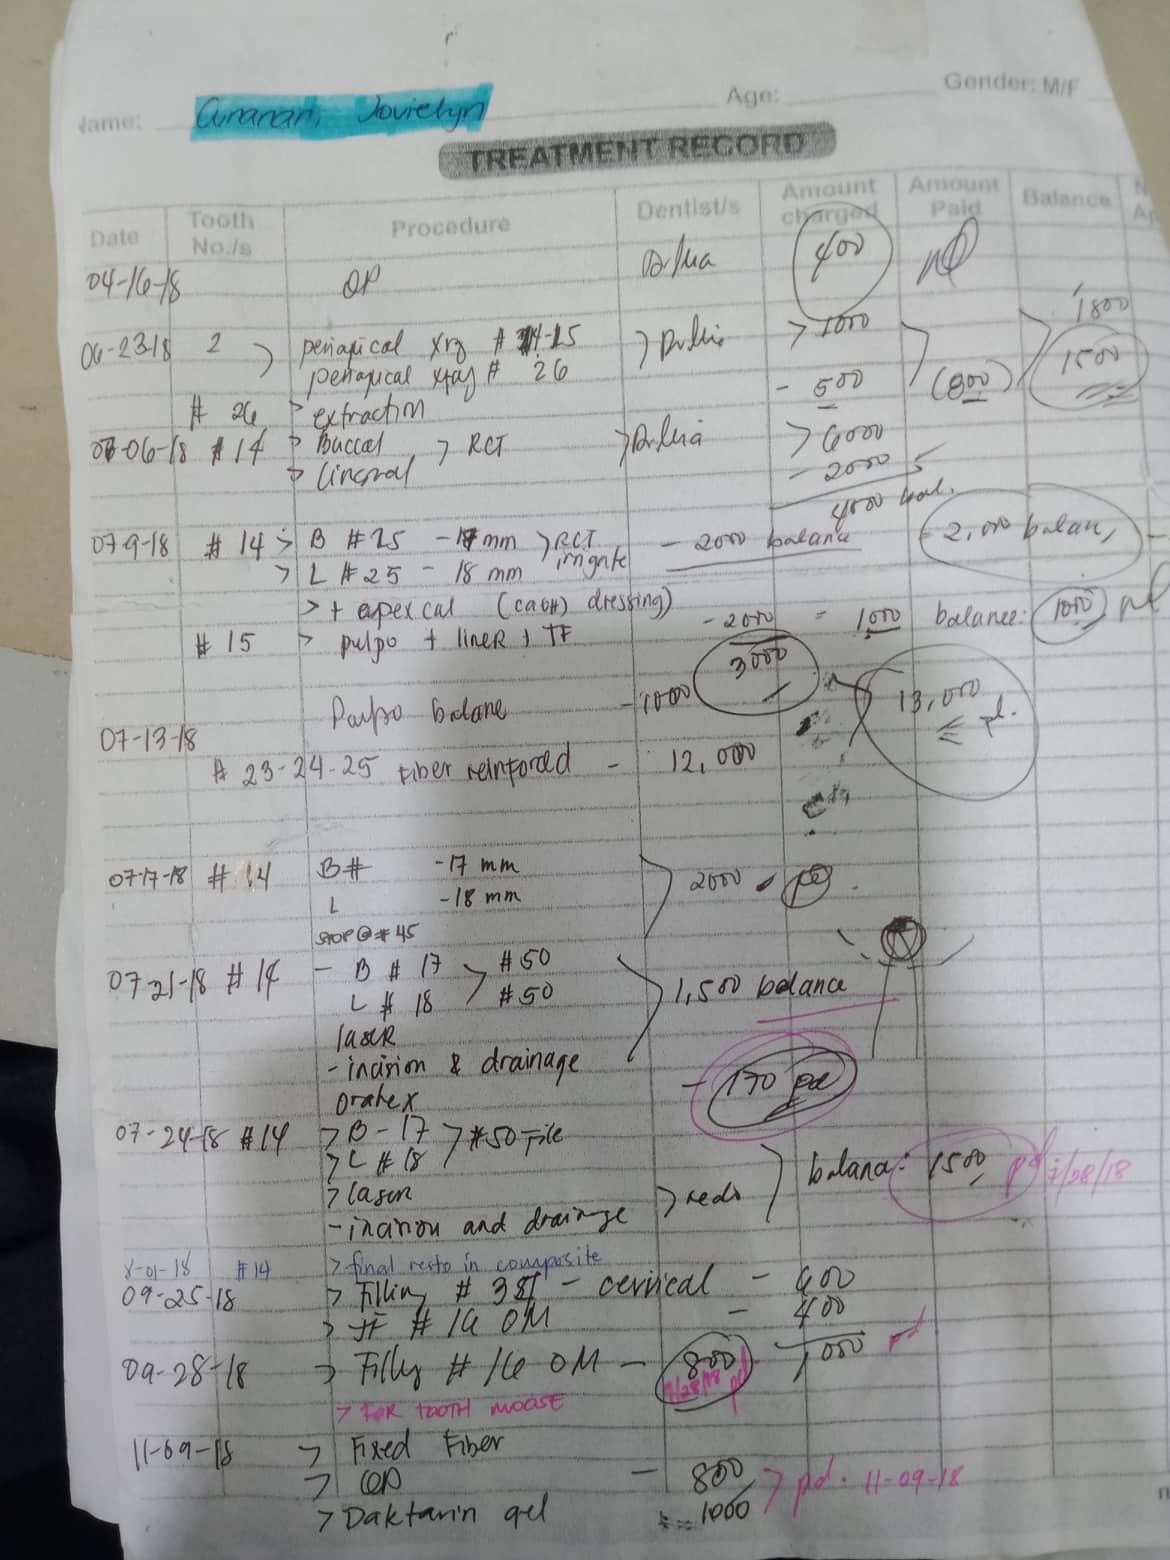 Name: Cunanan, Jovielyn Age: Gender: M/F
TREATMENT RECORD
Date Tooth No./s Procedure Dentist/s Amount charged Amount Paid Balance
04-16-18 OP 400 pd
06-23-18 2 > periapical xray # 14-15 > 1000 1800
periapical xray # 26 - 500 (800) 1500
# 26 > extraction
06-18 # 14 > Buccal > RCT > 6000
> Lingual - 2000
4000 bal.
07-9-18 # 14 > B # 25 - 17 mm > RCT - 2000 balance 2,000 balan,
> L # 25 - 18 mm irrigate
> + apexcal (caoH) dressing)
# 15 > pulpo + lineR + TF - 2000 = 1000 balance: 1000 pd
3000
07-13-18 Pulpo balane - 1000 13,000 pd.
# 23-24-25 Fiber reinforced - 12,000
07-17-18 # 14 B# -17 mm 2000 pd.
L -18 mm
STOP @ # 45
07-21-18 # 14 - B # 17 > #50
L # 18 #50 1,500 balance
laseR
- incision & drainage
orahex - 170 pd
07-24-18 #14 > B - 17 > #50 File
> L # 18
> laser balana: 1500 pd 7/28/18
- incision and drainage > redo
8-01-18 #14 > final resto in composite
09-25-18 > Filling # 38 - cervical - 600
> TF # 16 OM - 400
1,000 pd
09-28-18 > Filling # 16 OM - 800
9/28/18 pd.
> FOR TOOTH MOOSE
11-09-18 > Fixed Fiber
> OP - 800 > pd. 11-09-18
> Daktarin gel = 1000